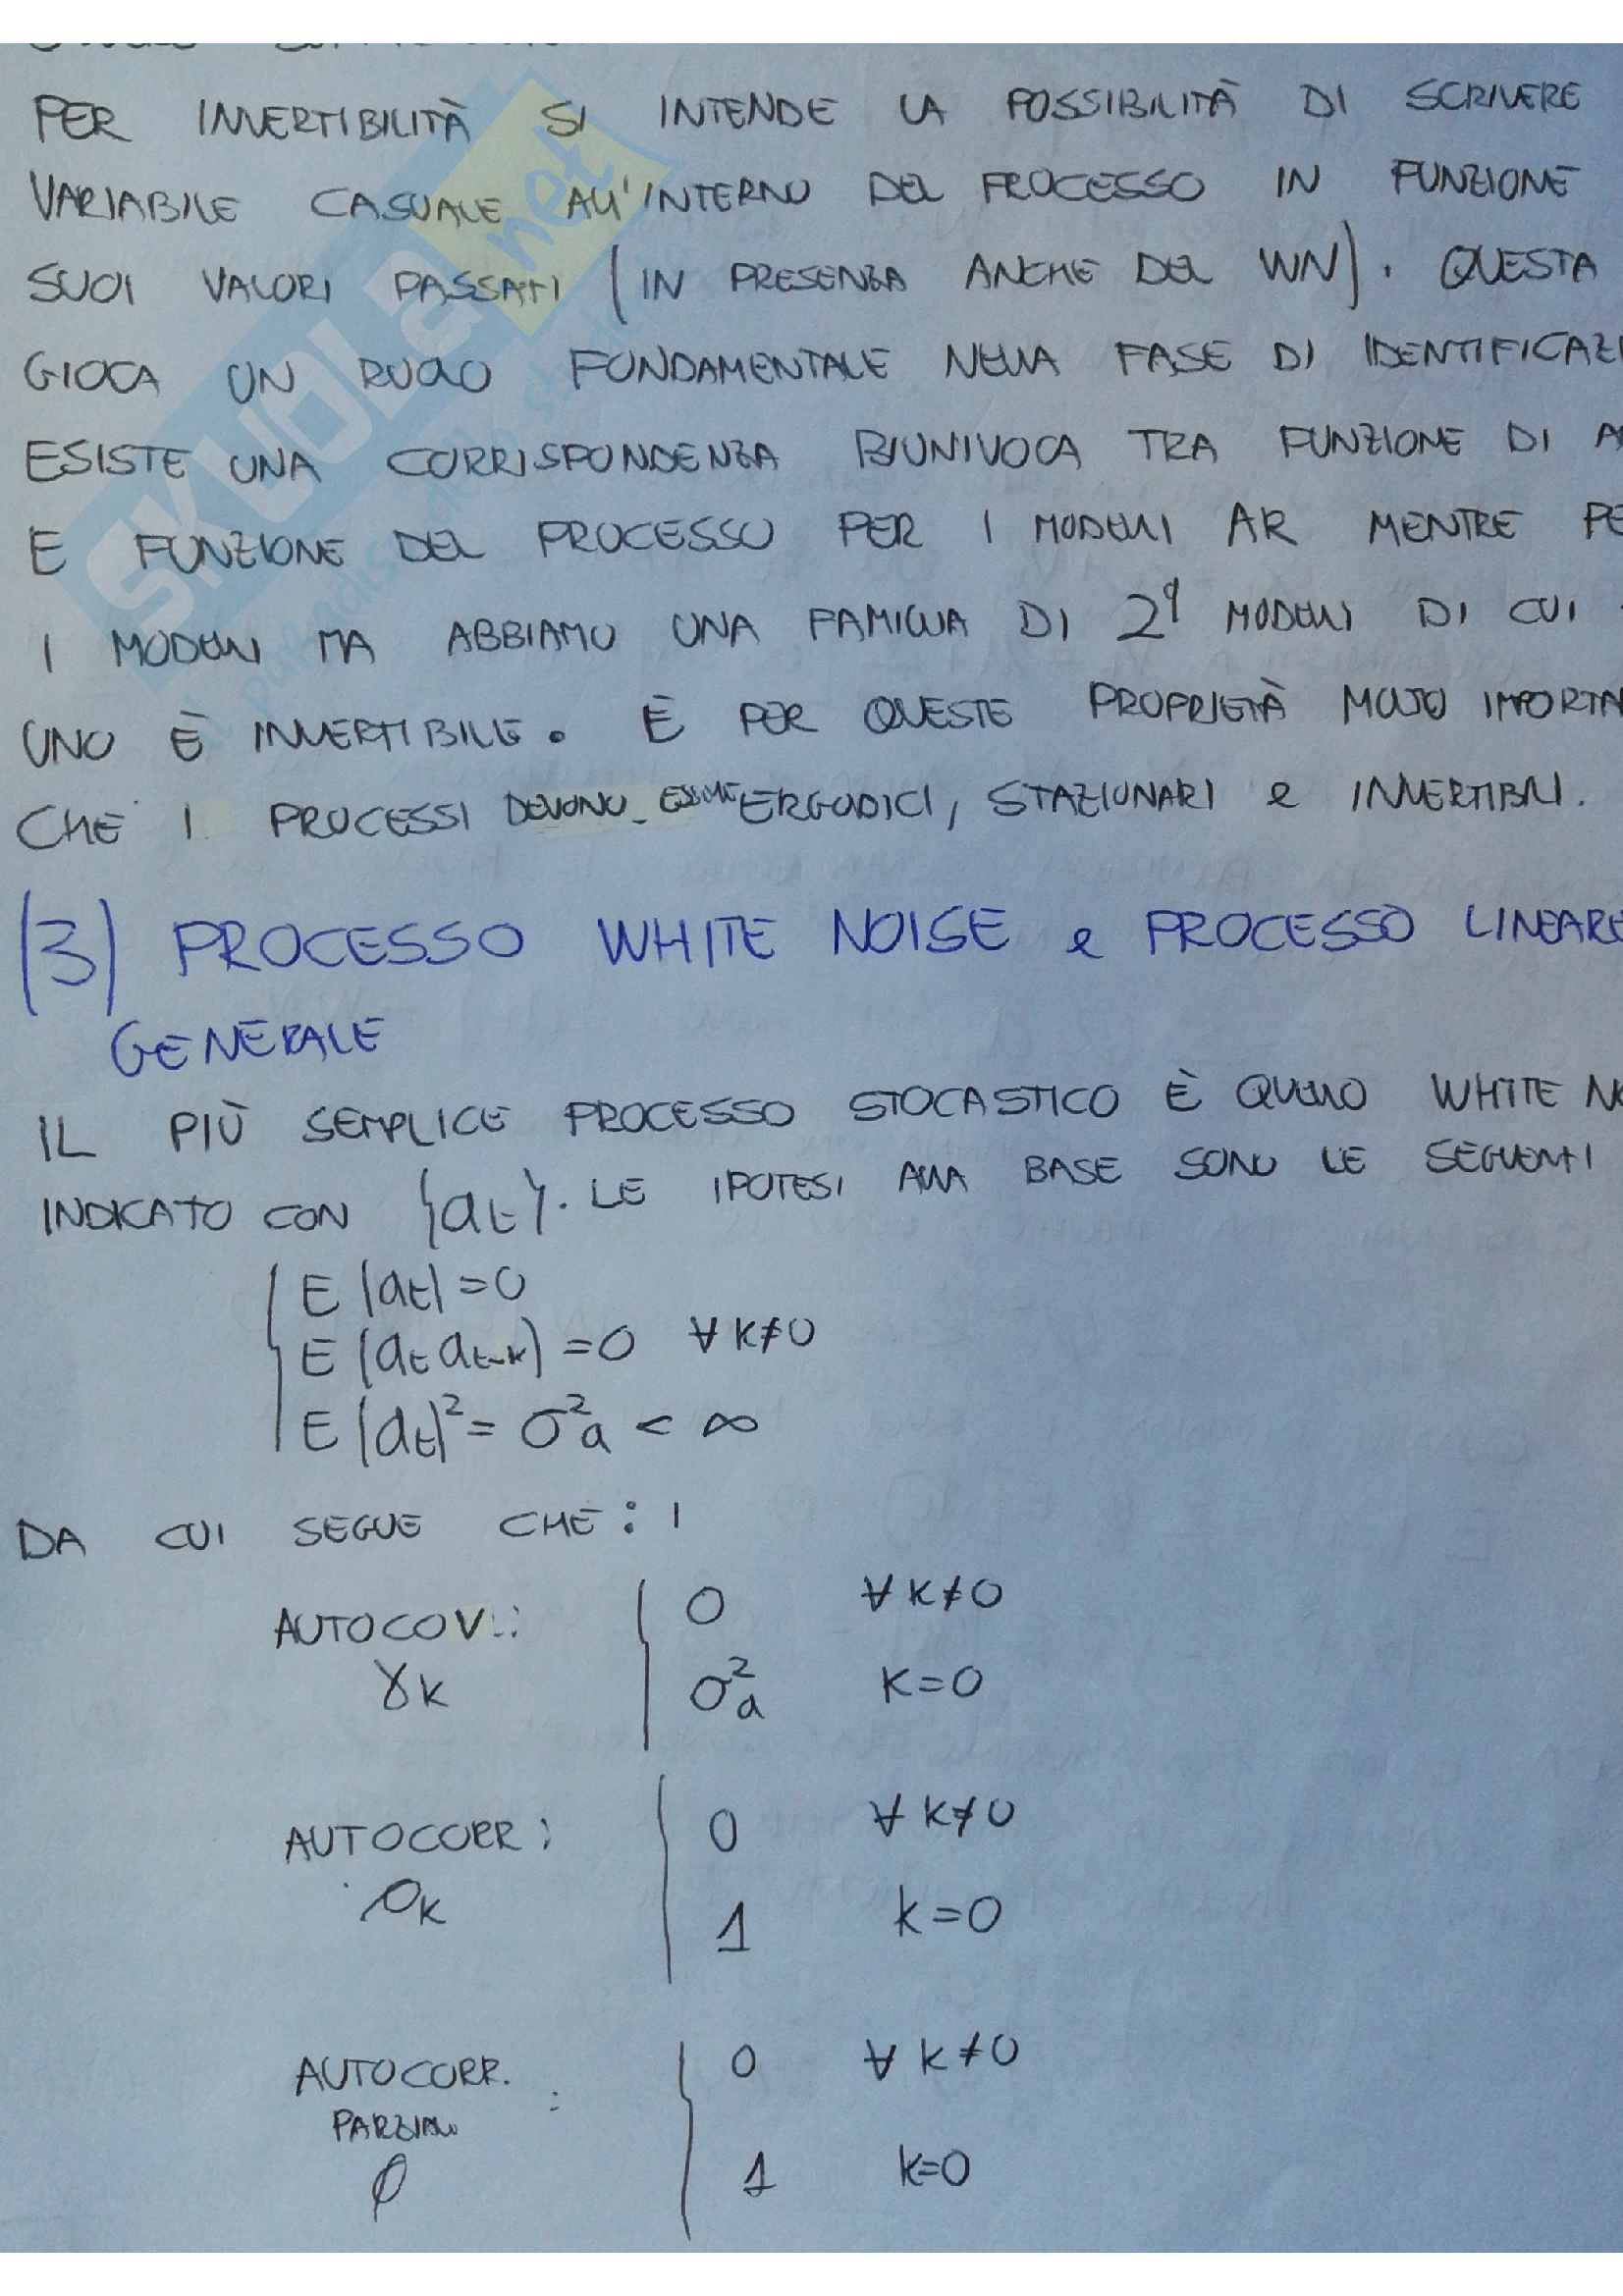 PER INVERTIBILITÀ SI INTENDE LA POSSIBILITÀ DI SCRIVERE
VARIABILE CASUALE ALL'INTERNO DEL PROCESSO IN FUNZIONE
SUOI VALORI PASSATI (IN PRESENZA ANCHE DEL WN). QUESTA
GIOCA UN RUOLO FONDAMENTALE NELLA FASE DI IDENTIFICAZI
ESISTE UNA CORRISPONDENZA BIUNIVOCA TRA FUNZIONE DI
E FUNZIONE DEL PROCESSO PER I MODELLI AR MENTRE PE
I MODELLI MA ABBIAMO UNA FAMIGLIA DI 2^q MODELLI DI CUI
UNO È INVERTIBILE. È PER QUESTE PROPRIETÀ MOLTO IMPORTA
CHE I PROCESSI DEVONO ESSERE ERGODICI, STAZIONARI e INVERTIBILI.
(3) PROCESSO WHITE NOISE e PROCESSO LINEARE
GENERALE
IL PIÙ SEMPLICE PROCESSO STOCASTICO È QUELLO WHITE NO
INDICATO CON {at}. LE IPOTESI ALLA BASE SONO LE SEGUENTI
{ E(at) = 0
E(at at-k) = 0 ∀ k≠0
E(at)² = σ²a < ∞
DA CUI SEGUE CHE:
AUTOCOV.: { 0 ∀ k≠0
γk σ²a k=0
AUTOCORR: { 0 ∀ k≠0
ρk 1 k=0
AUTOCORR. { 0 ∀ k≠0
PARZIALE :
φ 1 k=0
SKUOLA.net